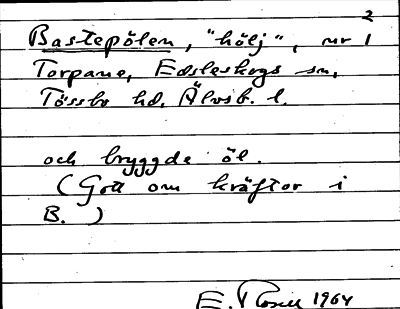 2
Bastepölen, "hölj", nr 1
Torpane, Edsleskogs sn,
Tössbo hd, Älvsb. l.
och bryggde öl.
(Gott om kräftor i
B.)
E. Rosell 1964